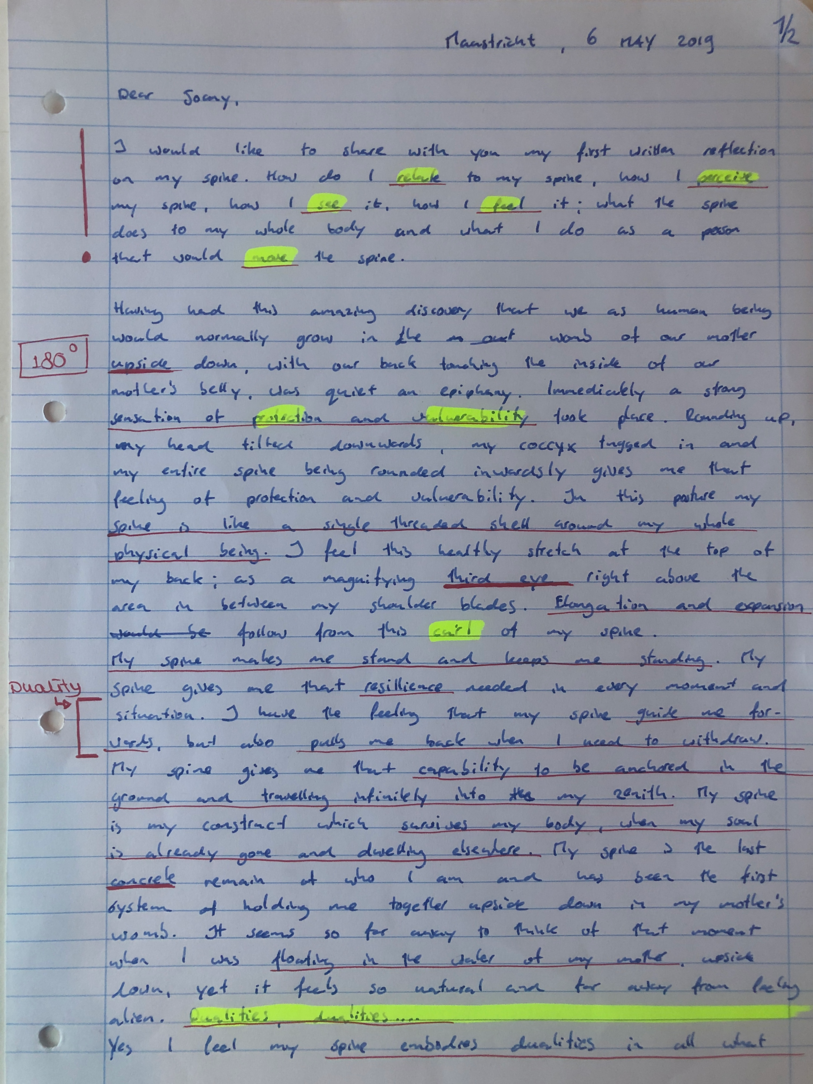 Maastricht, 6 MAY 2019
1/2
Dear Joany,
I would like to share with you my first written reflection
on my spine. How do I relate to my spine, how I perceive
my spine, how I see it, how I feel it; what the spine
does to my whole body and what I do as a person
that would move the spine.
Having had this amazing discovery that we as human being
would normally grow in the womb of our mother
180°
upside down, with our back touching the inside of our
mother's belly, was quiet an epiphany. Immediately a strong
sensation of protection and vulnerability took place. Rounding up,
my head tilted downwards, my coccyx tugged in and
my entire spine being rounded inwardsly gives me that
feeling of protection and vulnerability. In this posture my
spine is like a single threaded shell around my whole
physical being. I feel this healthy stretch at the top of
my back; as a magnifying third eye right above the
area in between my shoulder blades. Elongation and expansion
would be follow from this curl of my spine.
My spine makes me stand and keeps me standing. My
DUALITY
spine gives me that resillience needed in every moment and
situation. I have the feeling that my spine guide me for-
wards, but also pulls me back when I need to withdraw.
My spine gives me that capability to be anchored in the
ground and travelling infinitely into my zenith. My spine
is my construct which survives my body, when my soul
is already gone and dwelling elsewhere. My spine is the last
concrete remain of who I am and has been the first
system of holding me together upside down in my mother's
womb. It seems so far away to think of that moment
when I was floating in the water of my mother, upside
down, yet it feels so natural and far away from feeling
alien. Dualities, dualities....
Yes I feel my spine embodies dualities in all what